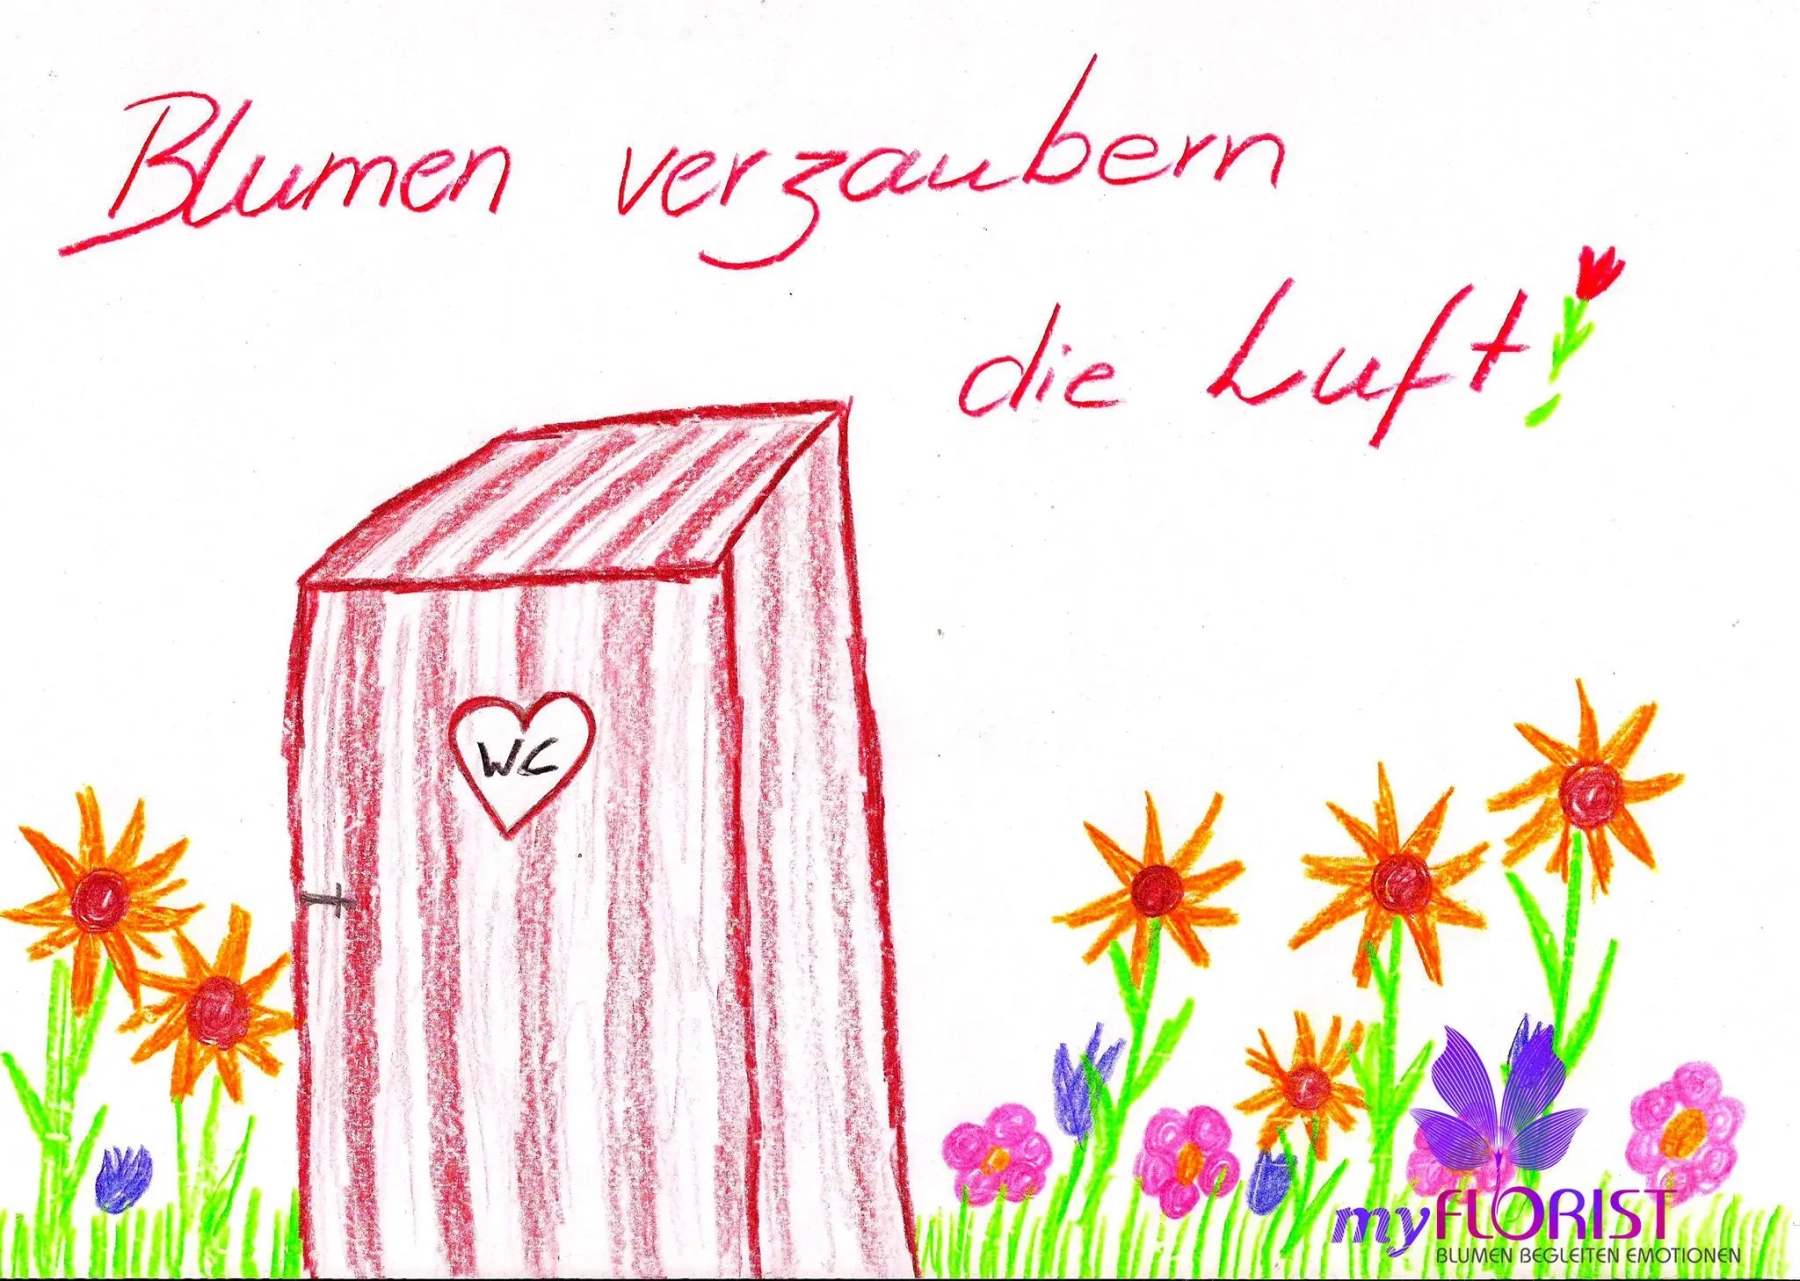 Blumen verzaubern
die Luft!
WC
myFLORIST
BLUMEN BEGLEITEN EMOTIONEN